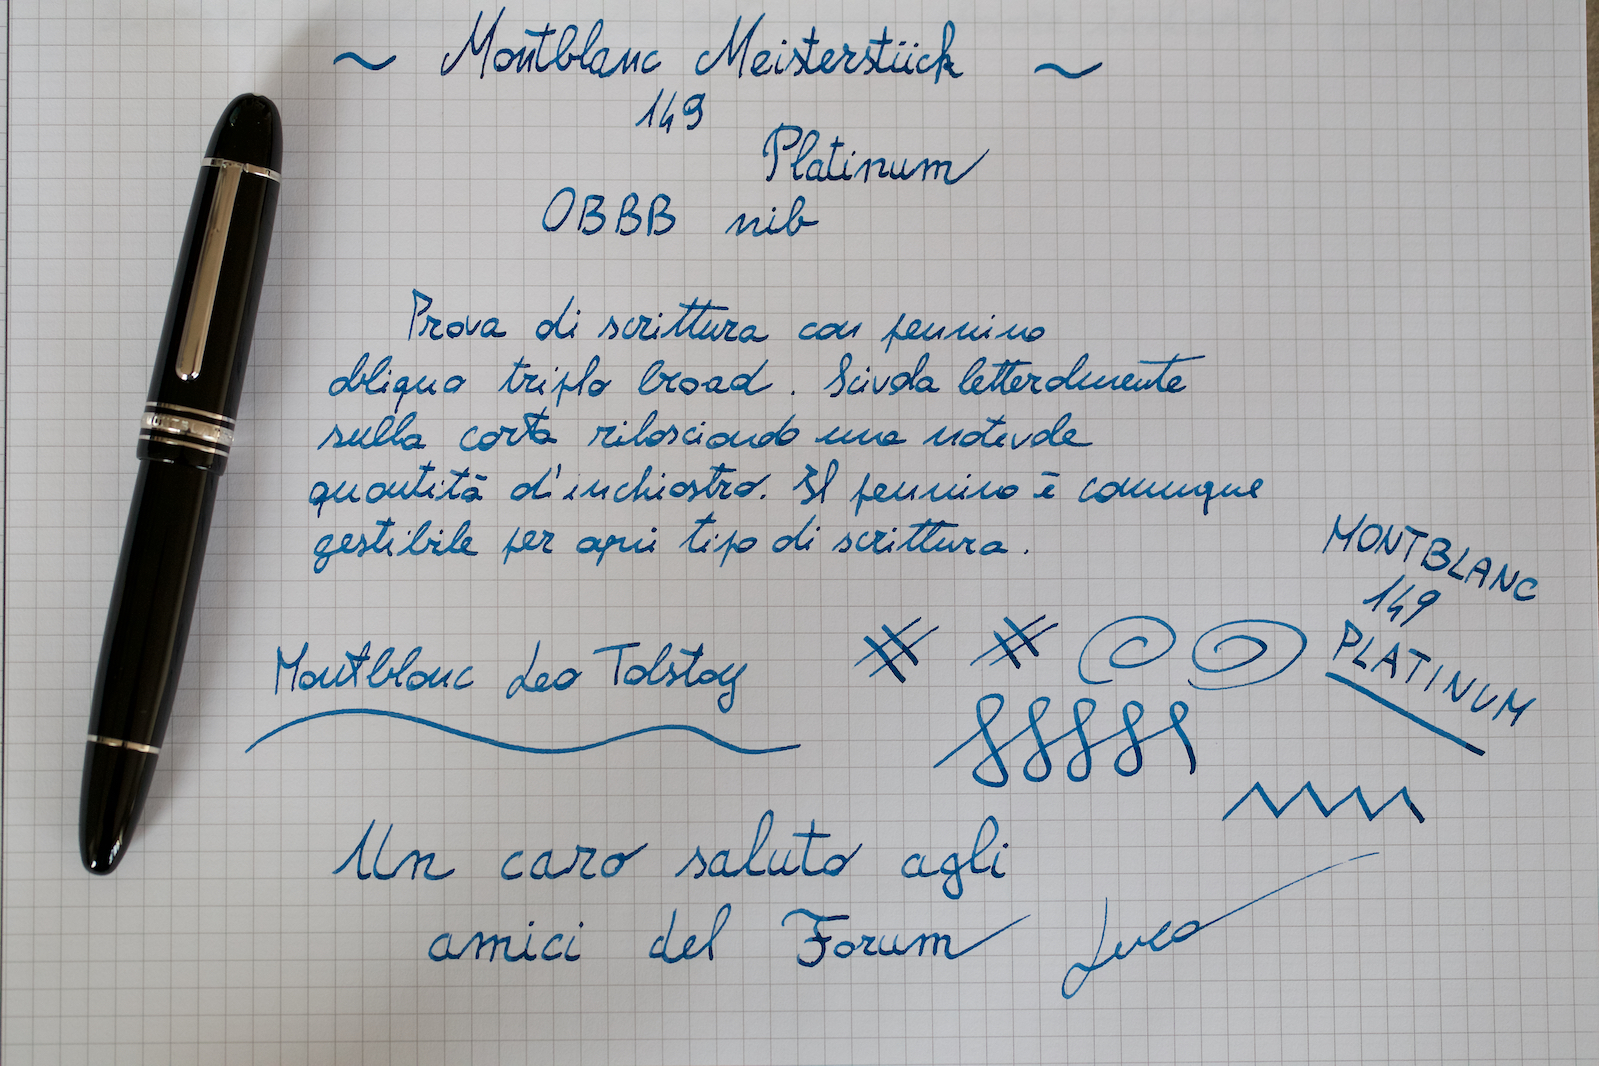 ~ Montblanc Meisterstück ~
149
Platinum
OBBB nib
Prova di scrittura con pennino
obliquo triplo broad. Scivola letteralmente
sulla carta rilasciando una notevole
quantità d'inchiostro. Il pennino è comunque
gestibile per ogni tipo di scrittura.
MONTBLANC
149
PLATINUM
Montblanc Leo Tolstoy
Un caro saluto agli
amici del Forum
Luca